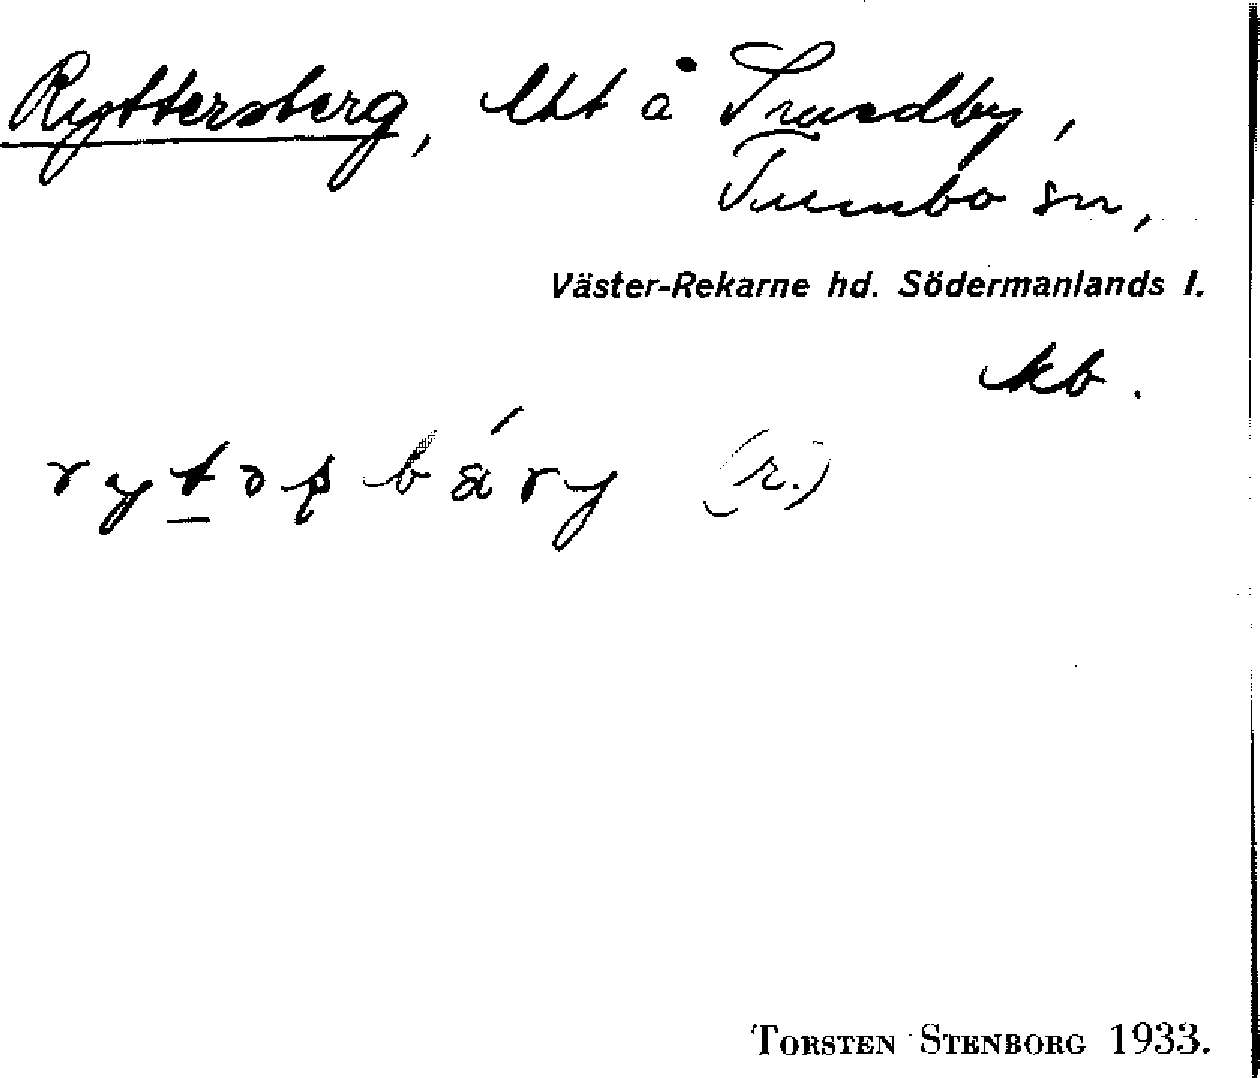 Ryttersberg, lht å Trundby,
Tumbo sn,
Väster-Rekarne hd. Södermanlands l.
kb.
(r.)
TORSTEN STENBORG 1933.